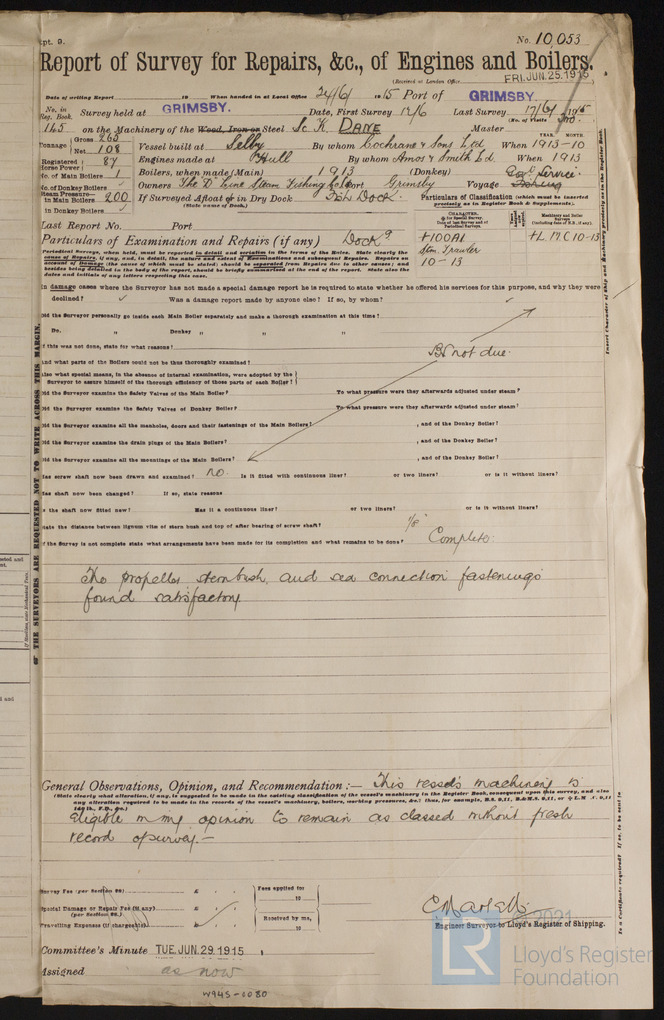 Rpt. 9.
No. 10,053
Report of Survey for Repairs, &c., of Engines and Boilers.
(Received at London Office FRI. JUN. 25. 1915
Date of writing Report 19 When handed in at Local Office 24/6/ 1915 Port of GRIMSBY.
No. in Reg. Book. Survey held at GRIMSBY. Date, First Survey 17/6 Last Survey 17/6/ 1915
(No. of Visits
145 on the Machinery of the Wood, Iron or Steel Sc K DANE Master
Tonnage Gross 265 Net 108
Vessel built at Selby By whom Cochrane & Sons Ltd When 1913-10
YEAR. MONTH.
Registered Horse Power 87
Engines made at Hull By whom Amos & Smith Ld. When 1913
No. of Main Boilers 1
Boilers, when made (Main) 1913 (Donkey)
No. of Donkey Boilers
Owners The "D" Line Steam Fishing Co Ld Port Grimsby Voyage Fishing
Service
Steam Pressure in Main Boilers 200
in Donkey Boilers
If Surveyed Afloat or in Dry Dock Fish Dock.
(State name of Dock.)
Particulars of Classification (which must be inserted precisely as in Register Book & Supplements).
Last Report No. Port
Particulars of Examination and Repairs (if any) Dockg
+100A1
Stm Trawler
10-13
+LMC 10-13
In damage cases where the Surveyor has not made a special damage report he is required to state whether he offered his services for this purpose, and why they were
declined? Was a damage report made by anyone else? If so, by whom?
Did the Surveyor personally go inside each Main Boiler separately and make a thorough examination at this time?
Do. " Donkey " " "
If this was not done, state for what reasons?
BS not due.
And what parts of the Boilers could not be thus thoroughly examined?
Also what special means, in the absence of internal examination, were adopted by the
Surveyor to assure himself of the thorough efficiency of those parts of each Boiler?
Did the Surveyor examine the Safety Valves of the Main Boiler? To what pressure were they afterwards adjusted under steam?
Did the Surveyor examine the Safety Valves of Donkey Boiler? To what pressure were they afterwards adjusted under steam?
Did the Surveyor examine all the manholes, doors and their fastenings of the Main Boilers? , and of the Donkey Boiler?
Did the Surveyor examine the drain plugs of the Main Boilers? , and of the Donkey Boiler?
Did the Surveyor examine all the mountings of the Main Boilers? , and of the Donkey Boiler?
Has screw shaft now been drawn and examined? no. Is it fitted with continuous liner? or two liners? or is it without liners?
Has shaft now been changed? If so, state reasons
Is the shaft now fitted new? Has it a continuous liner? or two liners? or is it without liners?
State the distance between lignum vitæ of stern bush and top of after bearing of screw shaft? 1/8"
If the Survey is not complete state what arrangements have been made for its completion and what remains to be done? Complete.
The propeller sternbush, and sea connection fastenings
found satisfactory
General Observations, Opinion, and Recommendation:— This vessel's machinery is
(State clearly what alteration, if any, is suggested to be made in the existing classification of the vessel's machinery in the Register Book, consequent upon this survey, and also
any alteration required to be made in the records of the vessel's machinery, boilers, working pressures, &c.: thus, for example, B.S. 9,11, B.&M.S. 9,11, or
eligible in my opinion to remain as classed without fresh
record of survey.—
Survey Fee (per Section 29) £
Fees applied for
19
Special Damage or Repair Fee (if any) £
(per Section 29.)
Received by me,
19
Travelling Expenses (if chargeable) £
Engineer Surveyor to Lloyd's Register of Shipping.
Committee's Minute TUE. JUN. 29. 1915
Assigned as now
W945-0080
OF THE SURVEYORS ARE REQUESTED NOT TO WRITE ACROSS THIS MARGIN.
© 2021
LR
Lloyd's Register
Foundation